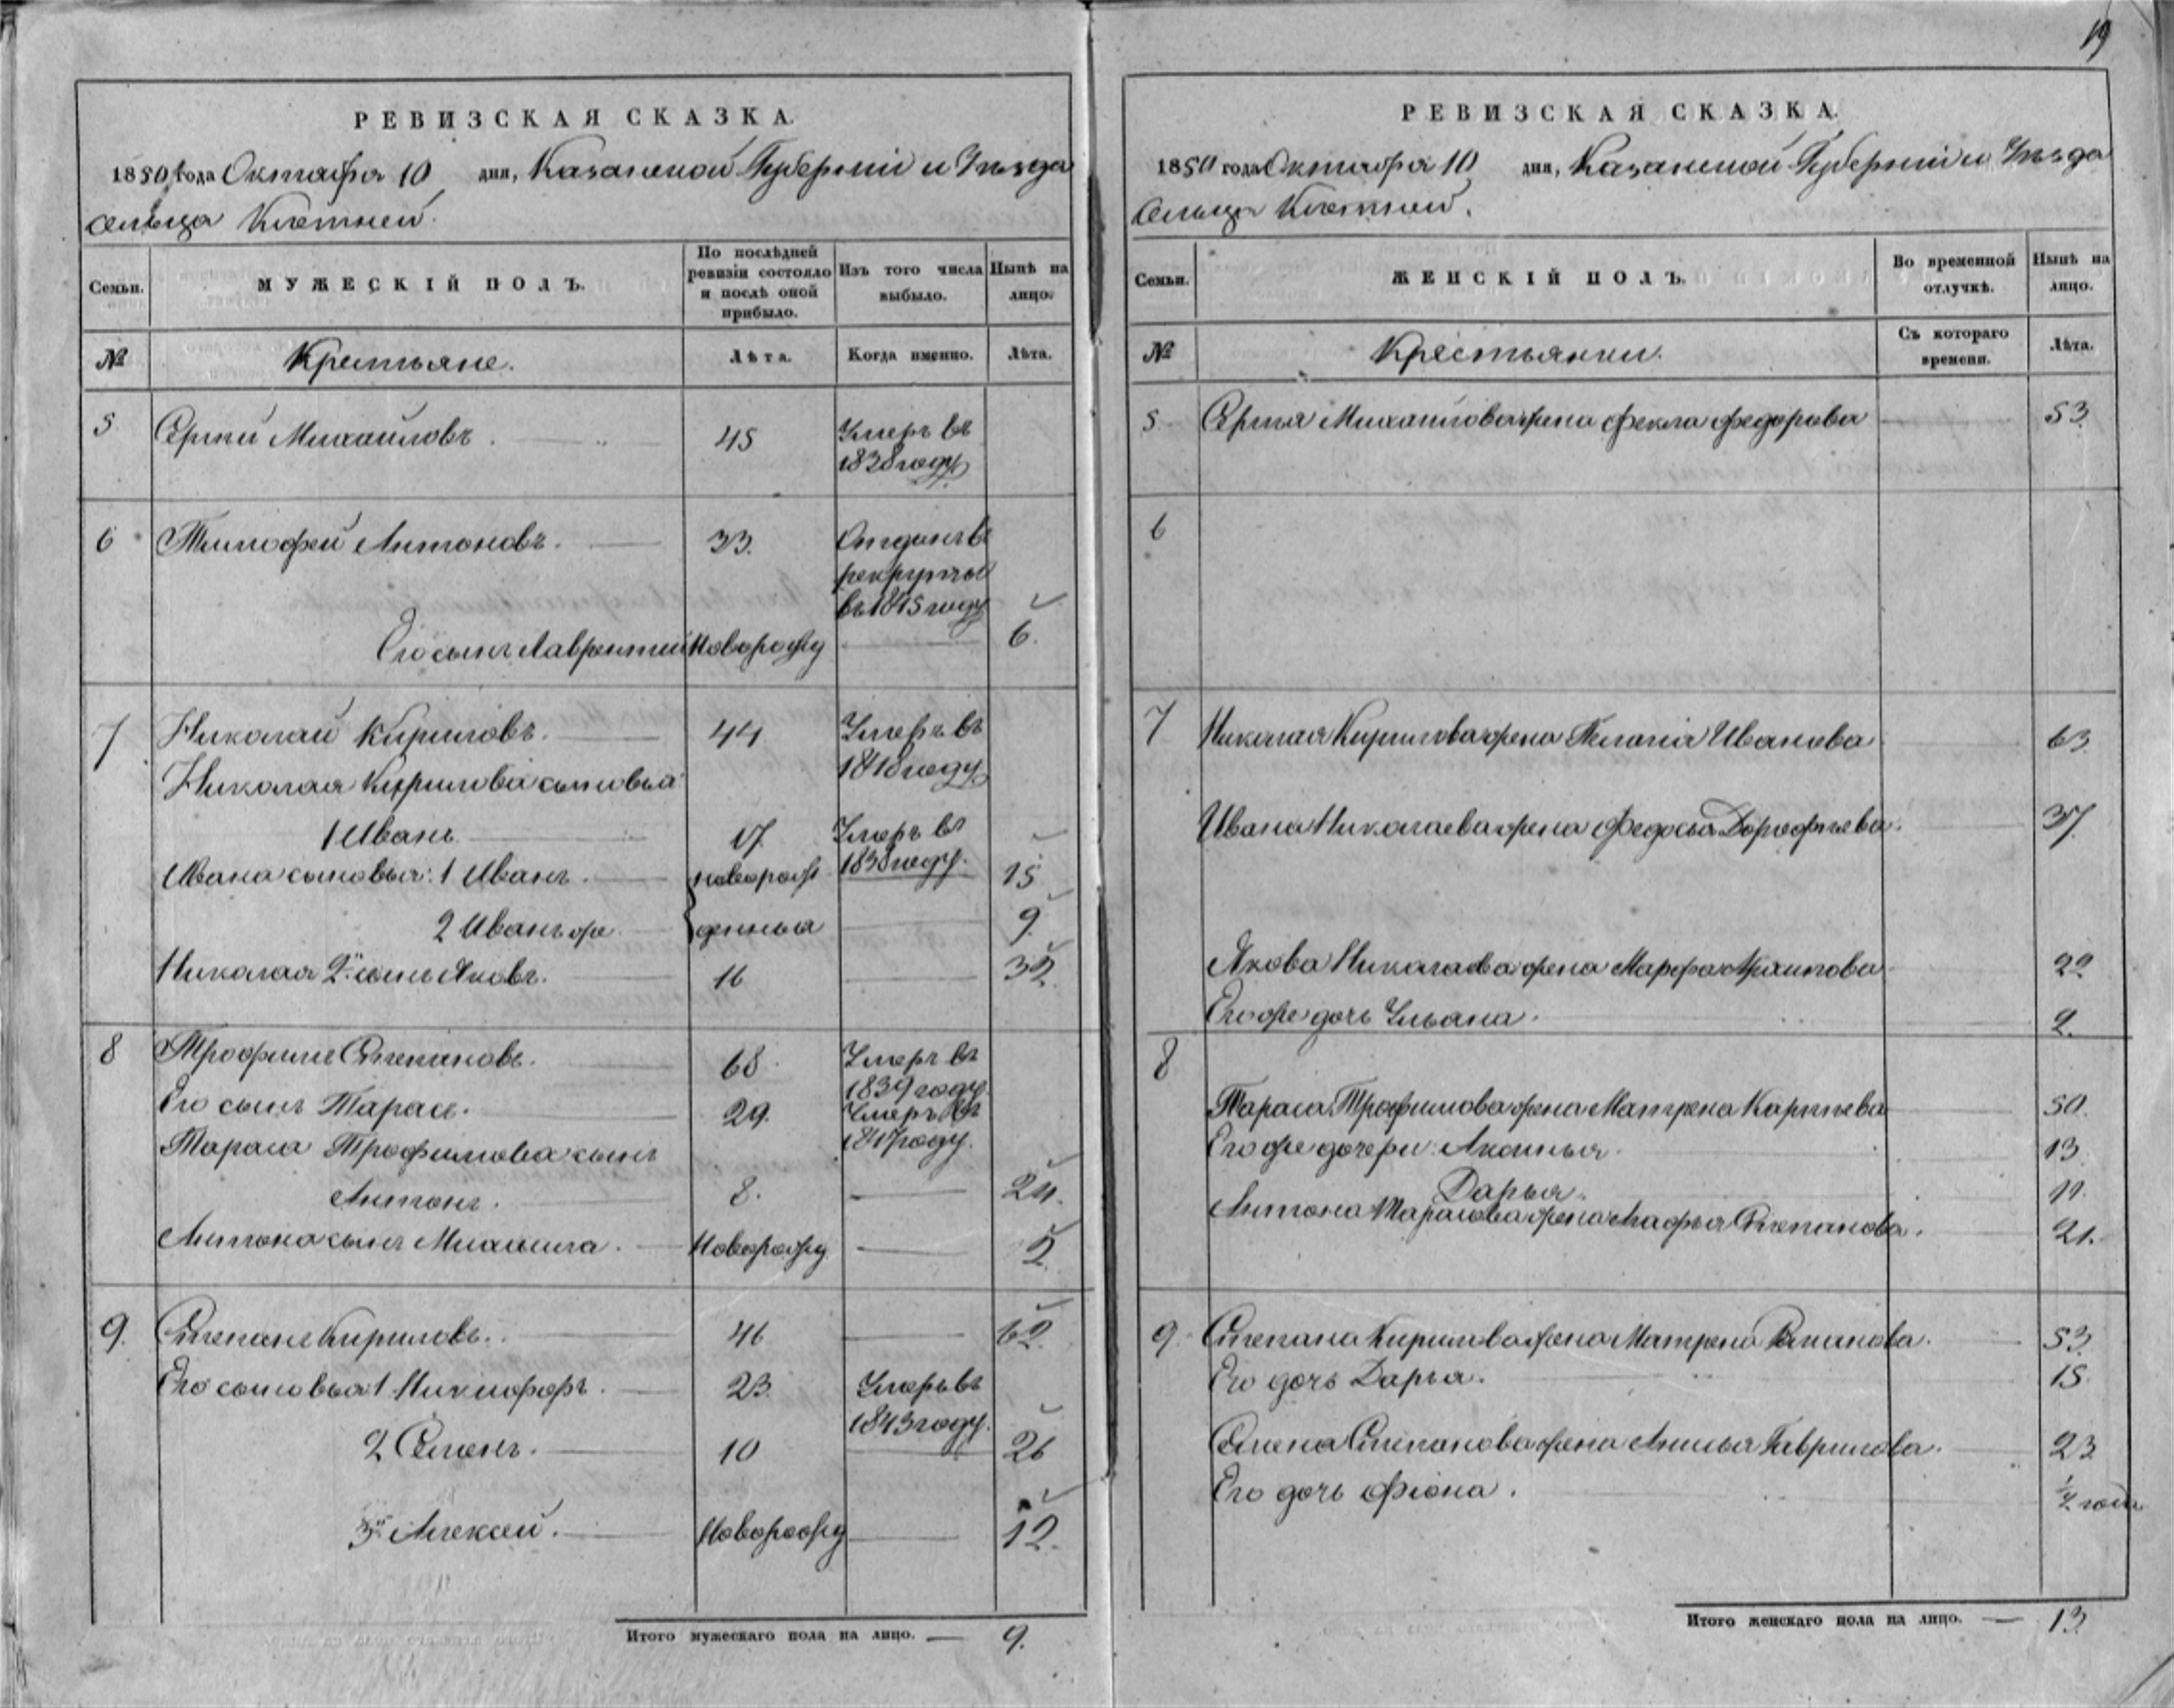 19
РЕВИЗСКАЯ СКАЗКА.
1850 года Октября 10 дня, Казанской Губернии и Уѣзда
сельца Клетней.
Семьи.
МУЖЕСКІЙ ПОЛЪ.
По послѣдней ревизіи состояло и послѣ оной прибыло.
Изъ того числа выбыло.
Нынѣ на лицо.
№
Крестьяне.
Лѣта.
Когда именно.
Лѣта.
5 Сергей Михаиловъ. 45 Умеръ въ
1838 году
6 Тимофей Антоновъ. 33. Отданъ въ
рекруты
въ 1845 году
Его сынъ Лаврентий Новорожд 6.
7 Николай Кириловъ. 44 Умеръ въ
1848 году
Николая Кирилова сыновья
1 Иванъ 17. Умеръ въ
1838 году.
Ивана сыновья: 1 Иванъ. новорож 15
2 Иванъ же денныя 9.
Николая 2й сынъ Яковъ. 16 32.
8 Трофимъ Степановъ. 68. Умеръ въ
1839 году
Его сынъ Тарас. 29. Умеръ въ
1847 году.
Тараса Трофимова сынъ
Антонъ. 8. 24.
Антона сынъ Михаила. Новорожд 2.
9. Степанъ Кириловъ. 46 62.
Его сыновья 1 Никифоръ. 23. Умеръ въ
1843 году.
2 Семенъ. 10 26
3й Алексей. Новорожд 12.
Итого мужескаго пола на лицо. — 9.
РЕВИЗСКАЯ СКАЗКА.
1850 года Октября 10 дня, Казанской Губернии и Уѣзда
Сельца Клетней.
Семьи.
ЖЕНСКІЙ ПОЛЪ.
Во временной отлучкѣ.
Нынѣ на лицо.
№
Крестьянки.
Съ котораго времени.
Лѣта.
5 Сергея Михаилова жена Фекла Федорова 53
6
7 Николая Кирилова жена Пелагія Иванова 63
Ивана Николаева жена Федосья Дорофѣева. 37.
Якова Николаева жена Марфа Архипова 22
Его же дочь Ульана. 2.
8
Тараса Трофимова жена Матрена Карпѣева 50.
Его же дочери: Акаинья. 13.
Дарья. 11.
Антона Тарасова жена Марья Степанова. 21.
9. Степана Кирилова жена Матрена Романова. 53.
Его дочь Дарья. 15.
Семена Степанова жена Анисья Гаврилова. 23
Его дочь Фіона. ½ года
Итого женскаго пола на лицо. — 13